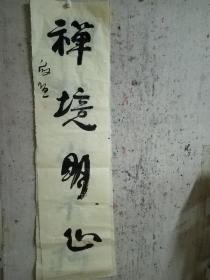 禅境明心